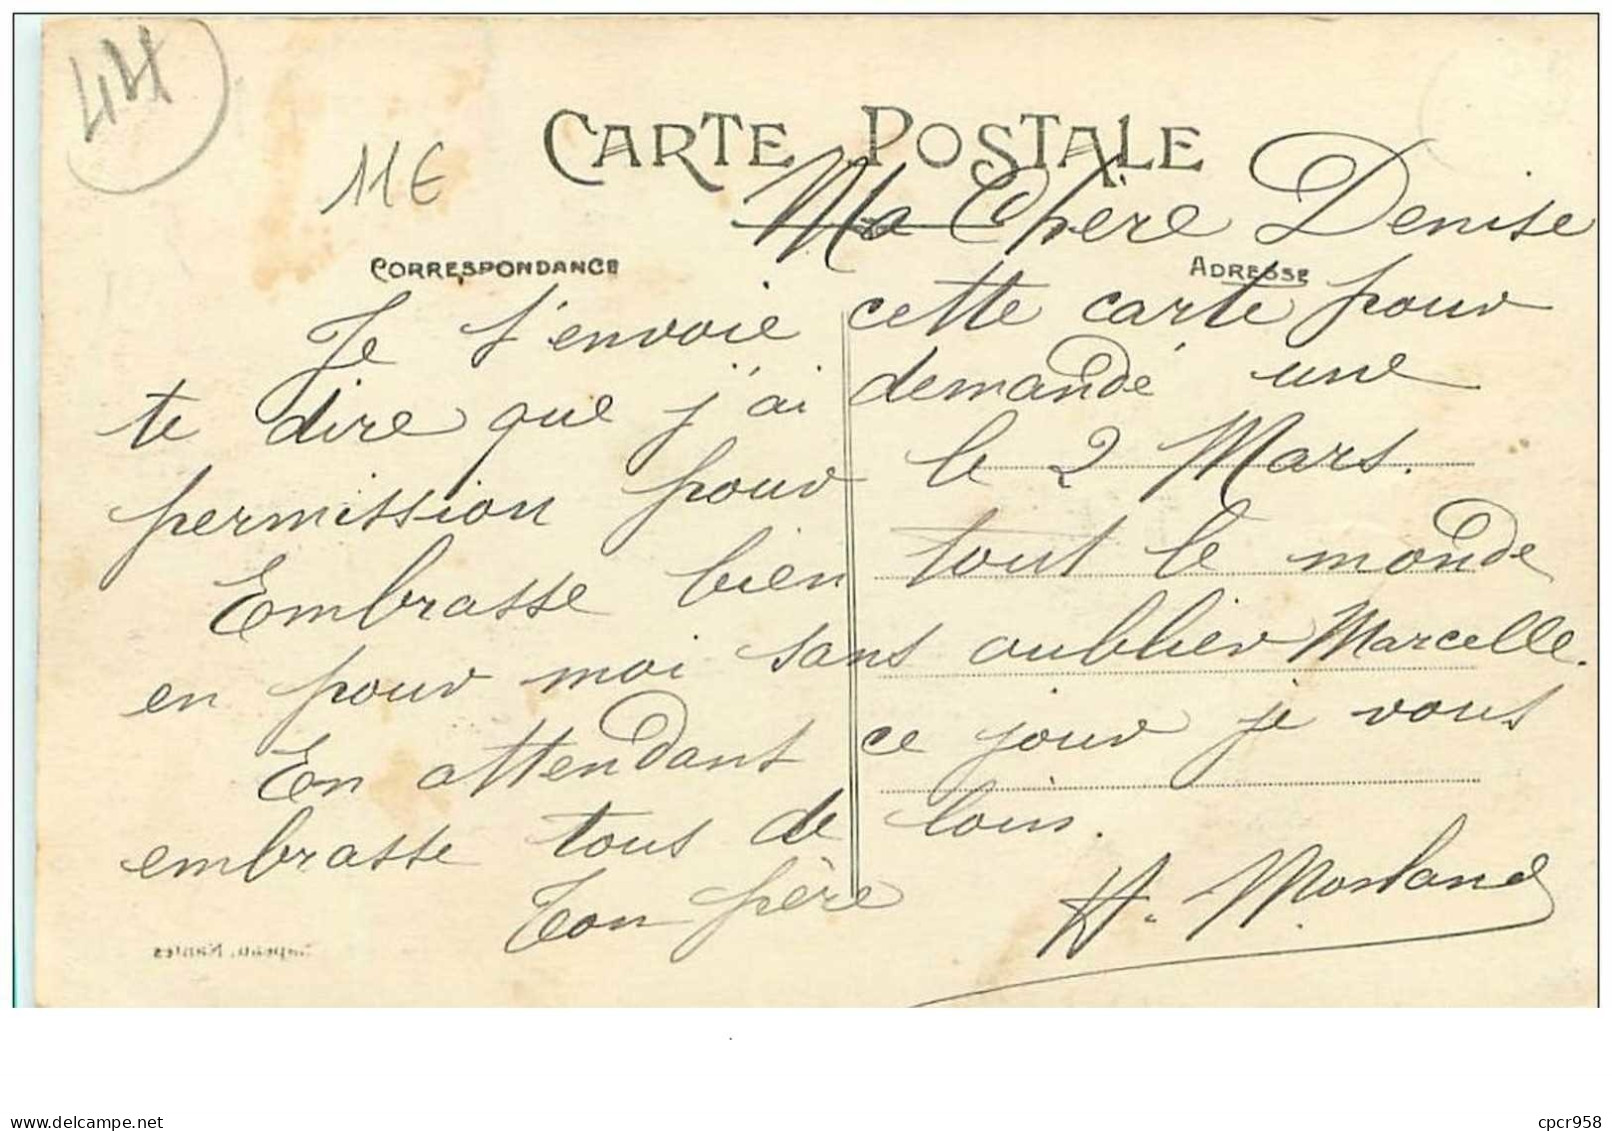 44
11€
CARTE POSTALE
Ma Chère Denise
CORRESPONDANCE ADRESSE
Je t'envoie cette carte pour
te dire que j'ai demandé une
permission pour le 2 Mars.
Embrasse bien tout le monde
en pour moi sans oublier Marcelle.
En attendant ce jour je vous
embrasse tous de loin.
Ton père H. Morland
Nantes
delcampe.net
cpcr958